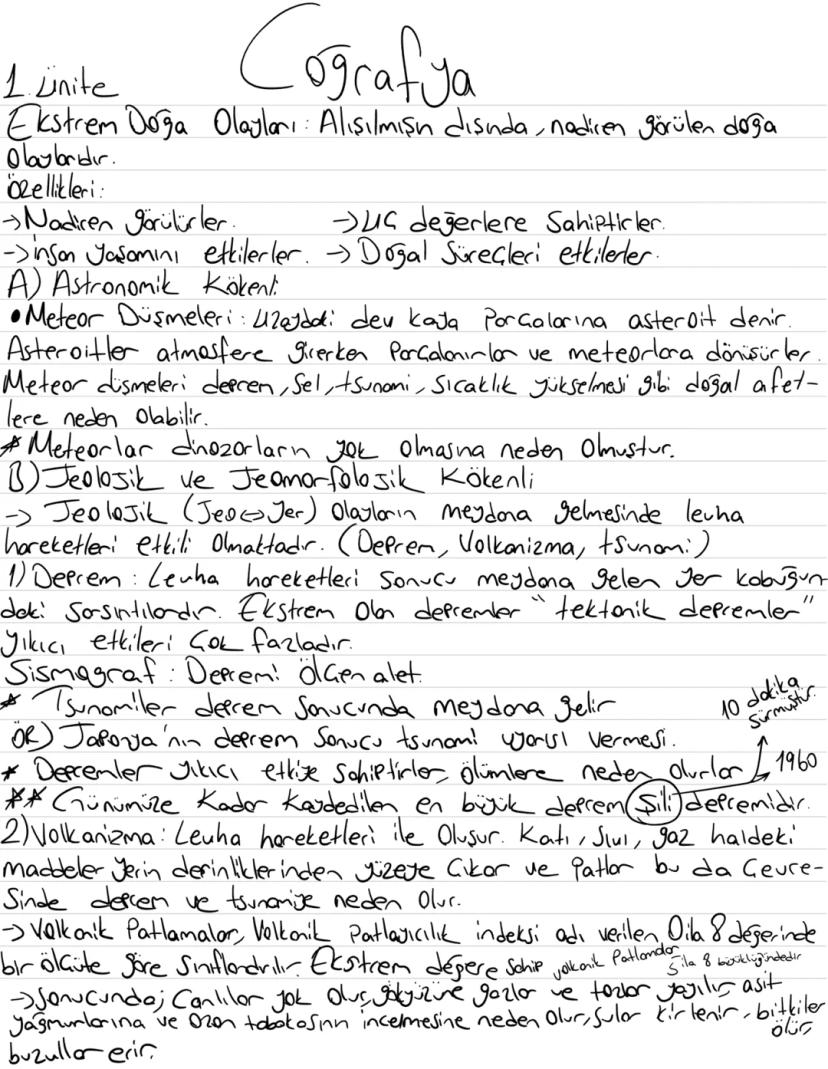 Coğrafya
1. ünite
Ekstrem Doğa Olayları: Alışılmışın dışında, nadiren görülen doğa
olaylarıdır.
Özellikleri:
→Nadiren görülürler. →Uç değerlere Sahiptirler.
→insan yaşamını etkilerler. → Doğal Süreçleri etkilerler.
A) Astronomik Kökenli
•Meteor Düşmeleri: Uzaydaki dev kaya Parçalarına asteroit denir.
Asteroitler atmosfere girerken Parçalanırlar ve meteorlara dönüşürler.
Meteor düşmeleri deprem, Sel, tsunami, Sıcaklık yükselmesi gibi doğal afet-
lere neden olabilir.
* Meteorlar dinozorların yok olmasına neden olmuştur.
B) Jeolojik ve Jeomorfolojik Kökenli
→ Jeolojik (Jeo↔Yer) Olayların meydana gelmesinde levha
hareketleri etkili olmaktadır. (Deprem, Volkanizma, tsunami)
1) Deprem: Levha hareketleri Sonucu meydana gelen yer kabuğun-
daki Sarsıntılardır. Ekstrem olan depremler "tektonik depremler"
yıkıcı etkileri çok fazladır.
Sismograf: Depremi ölçen alet.
* Tsunamiler deprem Sonucunda meydana gelir
ÖR) Japonya'nın deprem Sonucu tsunami uyarısı vermesi.
* Depremler yıkıcı etkiye Sahiptirler, ölümlere neden olurlar
1960
10 dakika
Sürmüştür.
** Günümüze Kadar Kaydedilen en büyük deprem Şili depremidir.
2) Volkanizma: Levha hareketleri ile Oluşur. Katı, Sıvı, gaz haldeki
maddeler yerin derinliklerinden yüzeye Çıkar ve Patlar bu da Çevre-
Sinde deprem ve tsunamiye neden Olur.
→ Volkanik Patlamalar, Volkanik Patlayıcılık indeksi adı verilen 0 ila 8 değerinde
bir ölçüte göre Sınıflandırılır. Ekstrem değere Sahip volkanik Patlamalar 5 ila 8 büyüklüğündedir
→Sonucunda; Canlılar yok olur, gökyüzüne gazlar ve tozlar yayılır, asit
yağmurlarına ve Ozon tabakasının incelmesine neden olur, Sular kirlenir, bitkiler
ölür,
buzullar erir.